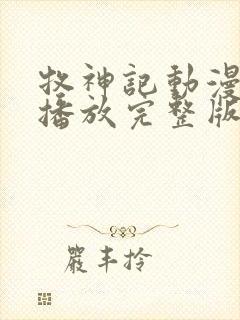 牧神記動漫
播放完整版
嚴丰拎